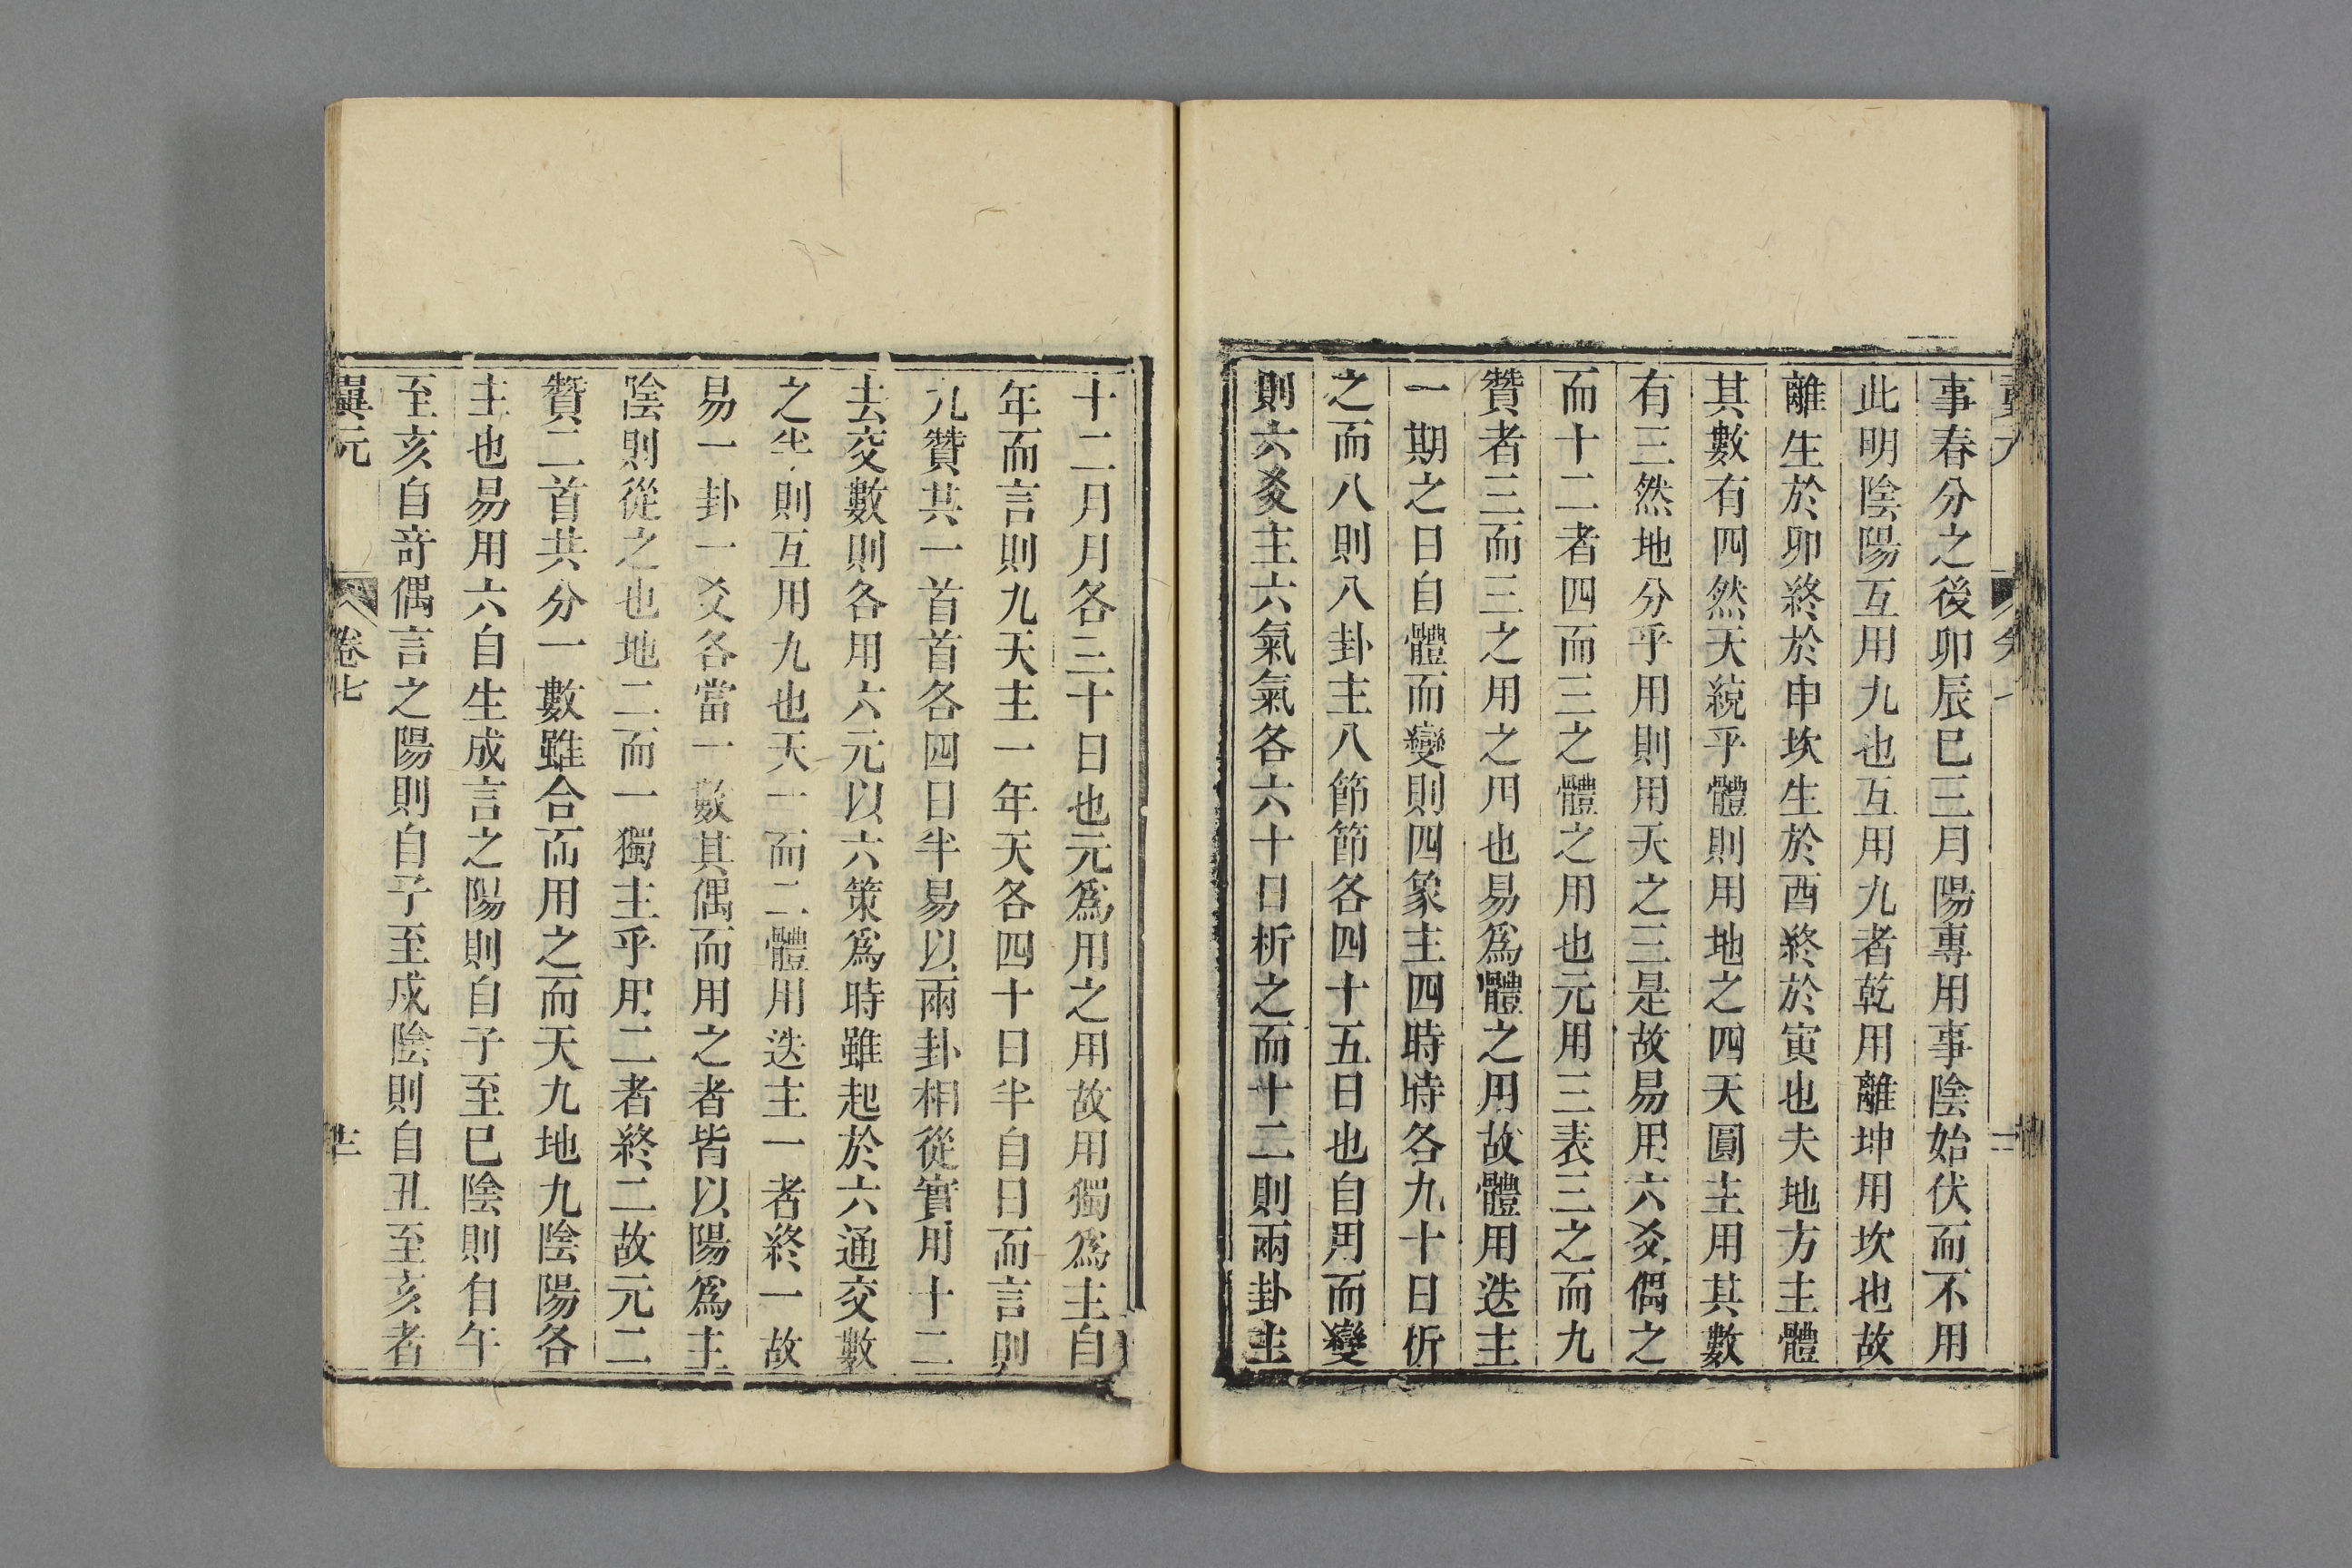 事春分之後卯辰巳三月陽專用事陰始伏而不用
此明陰陽互用九也互用九者乾用離坤用坎也故
離生於卯終於申坎生於酉終於寅也夫地方主體
其數有四然天統乎體則用地之四天圓主用其數
有三然地分乎用則用天之三是故易用六爻偶之
而十二者四而三之體之用也元用三表三之而九
贊者三而三之用之用也易為體之用故體用迭主
一期之日自體而變則四象主四時時各九十日析
之而八則八卦主八節節各四十五日也自用而變
則六爻主六氣氣各六十日析之而十二則兩卦主
十二月月各三十日也元為用之用故用獨為主自
年而言則九天主一年天各四十日半自日而言則
九贊共一首首各四日半易以兩卦相從實用十二
去交數則各用六元以六策為時雖起於六通交數
之半則互用九也天一而二體用迭主一者終一故
易一卦一爻各當一數其偶而用之者皆以陽為主
陰則從之也地二而一獨主乎用二者終二故元二
贊二首共分一數雖合而用之而天九地九陰陽各
主也易用六自生成言之陽則自子至巳陰則自午
至亥自奇偶言之陽則自子至戌陰則自丑至亥者
翼元 卷七 十二